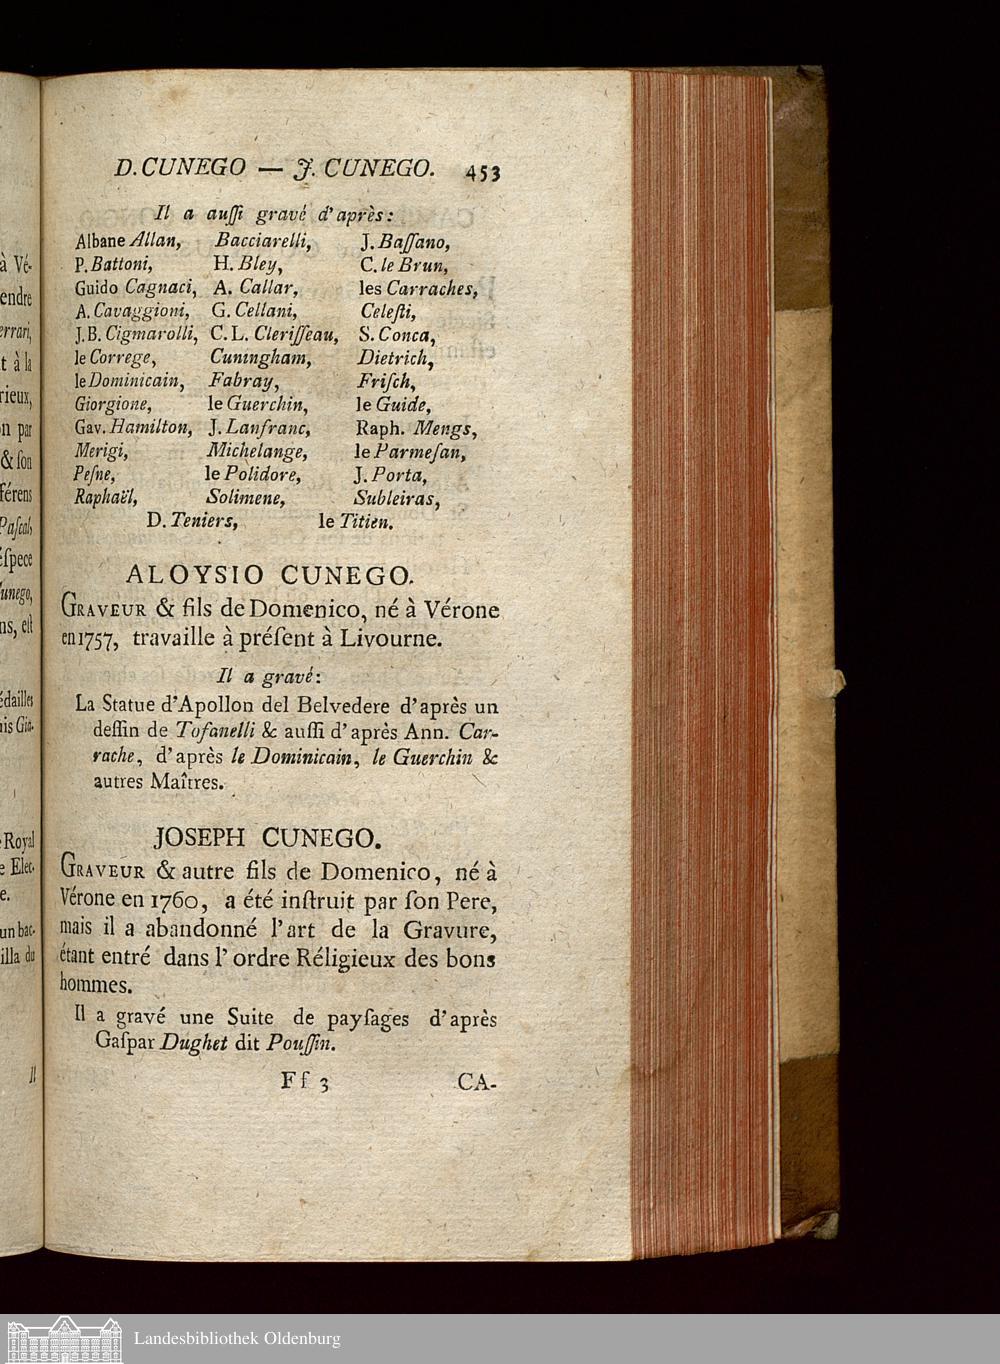 D. CUNEGO — J. CUNEGO. 453
Il a auſſi gravé d'après:
Albane Allan, Bacciarelli, J. Baſſano,
P. Battoni, H. Bley, C. le Brun,
Guido Cagnaci, A. Callar, les Carraches,
A. Cavaggioni, G. Cellani, Celeſti,
J.B. Cigmarolli, C. L. Cleriſſeau, S. Conca,
le Correge, Cuningham, Dietrich,
le Dominicain, Fabray, Friſch,
Giorgione, le Guerchin, le Guide,
Gav. Hamilton, J. Lanfranc, Raph. Mengs,
Merigi, Michelange, le Parmeſan,
Peſne, le Polidore, J. Porta,
Raphaël, Solimene, Subleiras,
D. Teniers, le Titien.
ALOYSIO CUNEGO.
GRAVEUR & fils de Domenico, né à Vérone
en 1757, travaille à préſent à Livourne.
Il a gravé:
La Statue d'Apollon del Belvedere d'après un
deſſin de Tofanelli & auſſi d'après Ann. Car-
rache, d'après le Dominicain, le Guerchin &
autres Maîtres.
JOSEPH CUNEGO.
GRAVEUR & autre fils de Domenico, né à
Vérone en 1760, a été inſtruit par ſon Pere,
mais il a abandonné l'art de la Gravure,
étant entré dans l'ordre Réligieux des bons
hommes.
Il a gravé une Suite de payſages d'après
Gaſpar Dughet dit Pouſſin.
Ff 3 CA-
à Vé-
endre
errari,
t à la
rieux,
n par
& ſon
férens
Paſcal,
éſpece
unego,
ns, eſt
édailles
nis Gio-
Royal
e Elec-
e.
un bac-
illa du
Il
Landesbibliothek Oldenburg